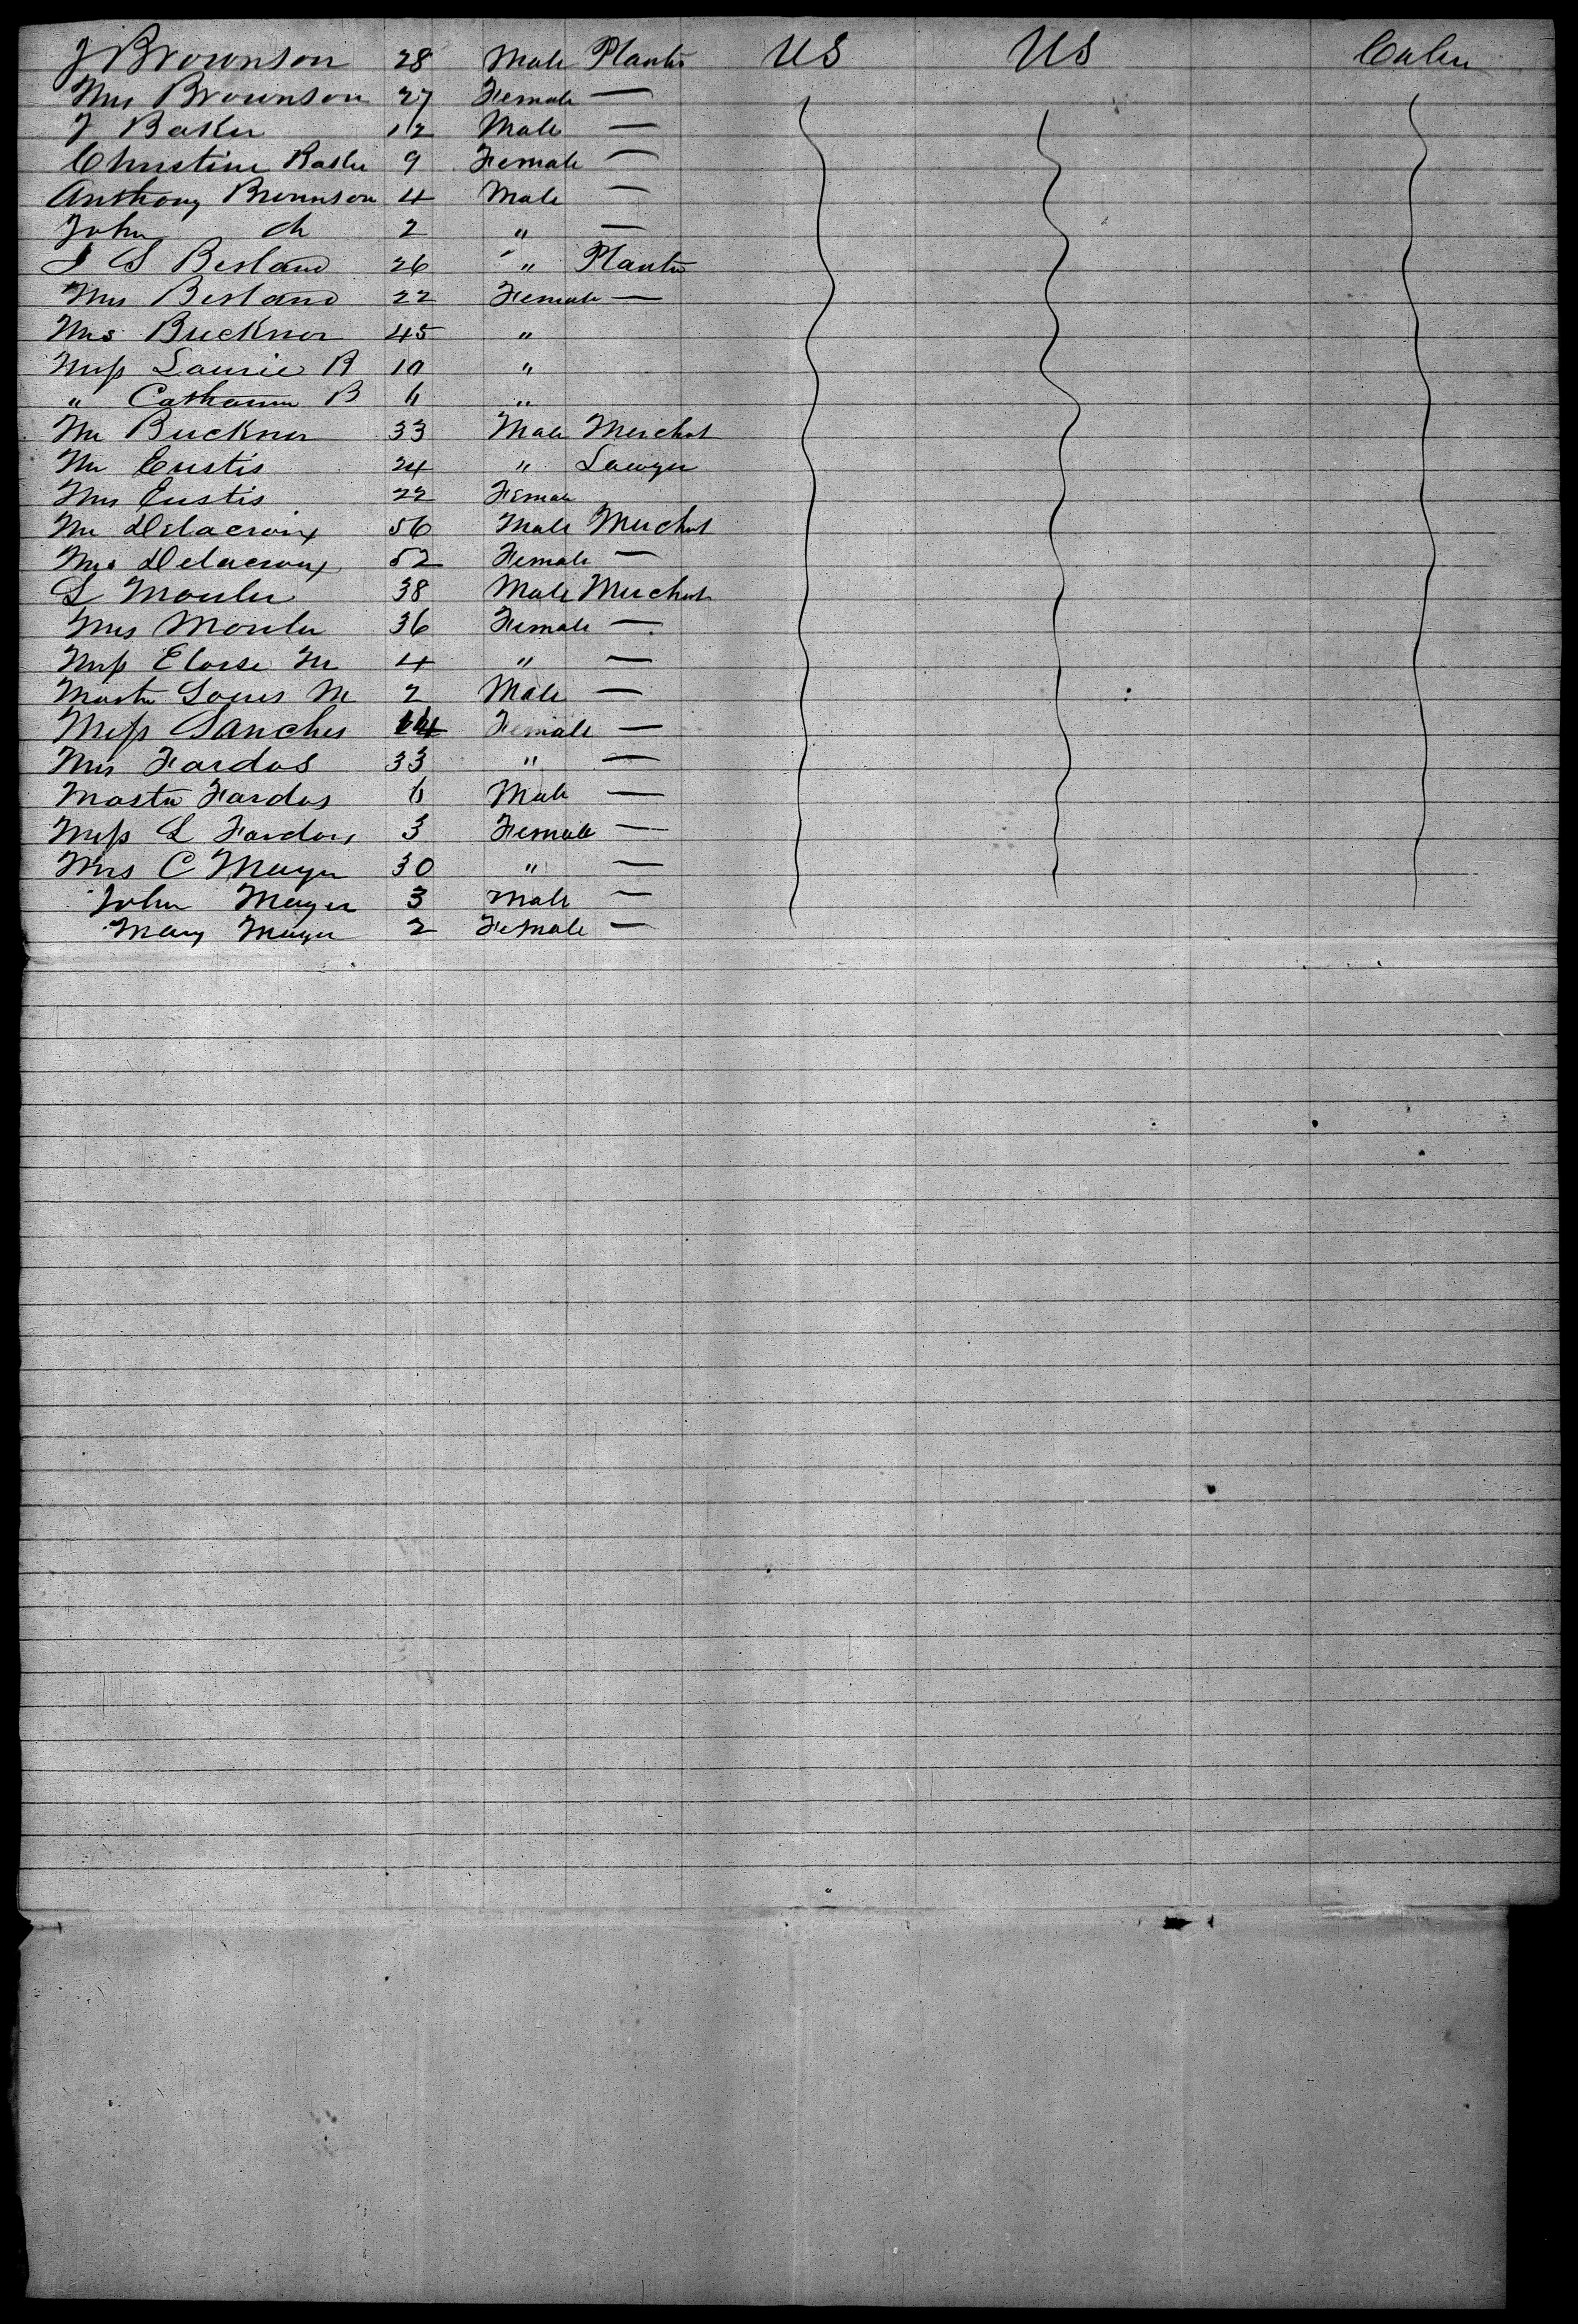 J Brownson 28 Male Planter US US Cabin
Mrs Brownson 27 Female —
J Baker 12 Male —
Christine Baker 9 Female —
Anthony Brownson 4 Male —
John do 2 " —
J S Besland 26 " Planter
Mrs Besland 22 Female —
Mrs Buckner 45 "
Miss Laurie B 10 "
" Catharine B 6 "
Mr Buckner 33 Male Merchat
Mr Eustis 24 " Lawyer
Mrs Eustis 22 Female
Mr Delacroix 56 Male Merchat
Mrs Delacroix 52 Female —
L Mouler 38 Male Merchat
Mrs Mouler 36 Female —
Miss Eloise M 4 " —
Master Louis M 2 Male —
Miss Sanches 14 Female —
Mrs Fardos 33 " —
Master Fardos 6 Male —
Miss L Fardos 3 Female —
Mrs C Mayer 30 " —
John Mayer 3 Male —
Mary Mayer 2 Female —